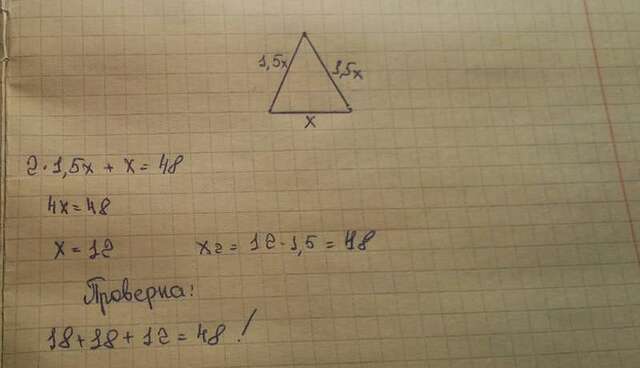 1,5x 1,5x
x
2·1,5x + x = 48
4x = 48
x = 12 x₂ = 12·1,5 = 18
Проверка:
18 + 18 + 12 = 48 !